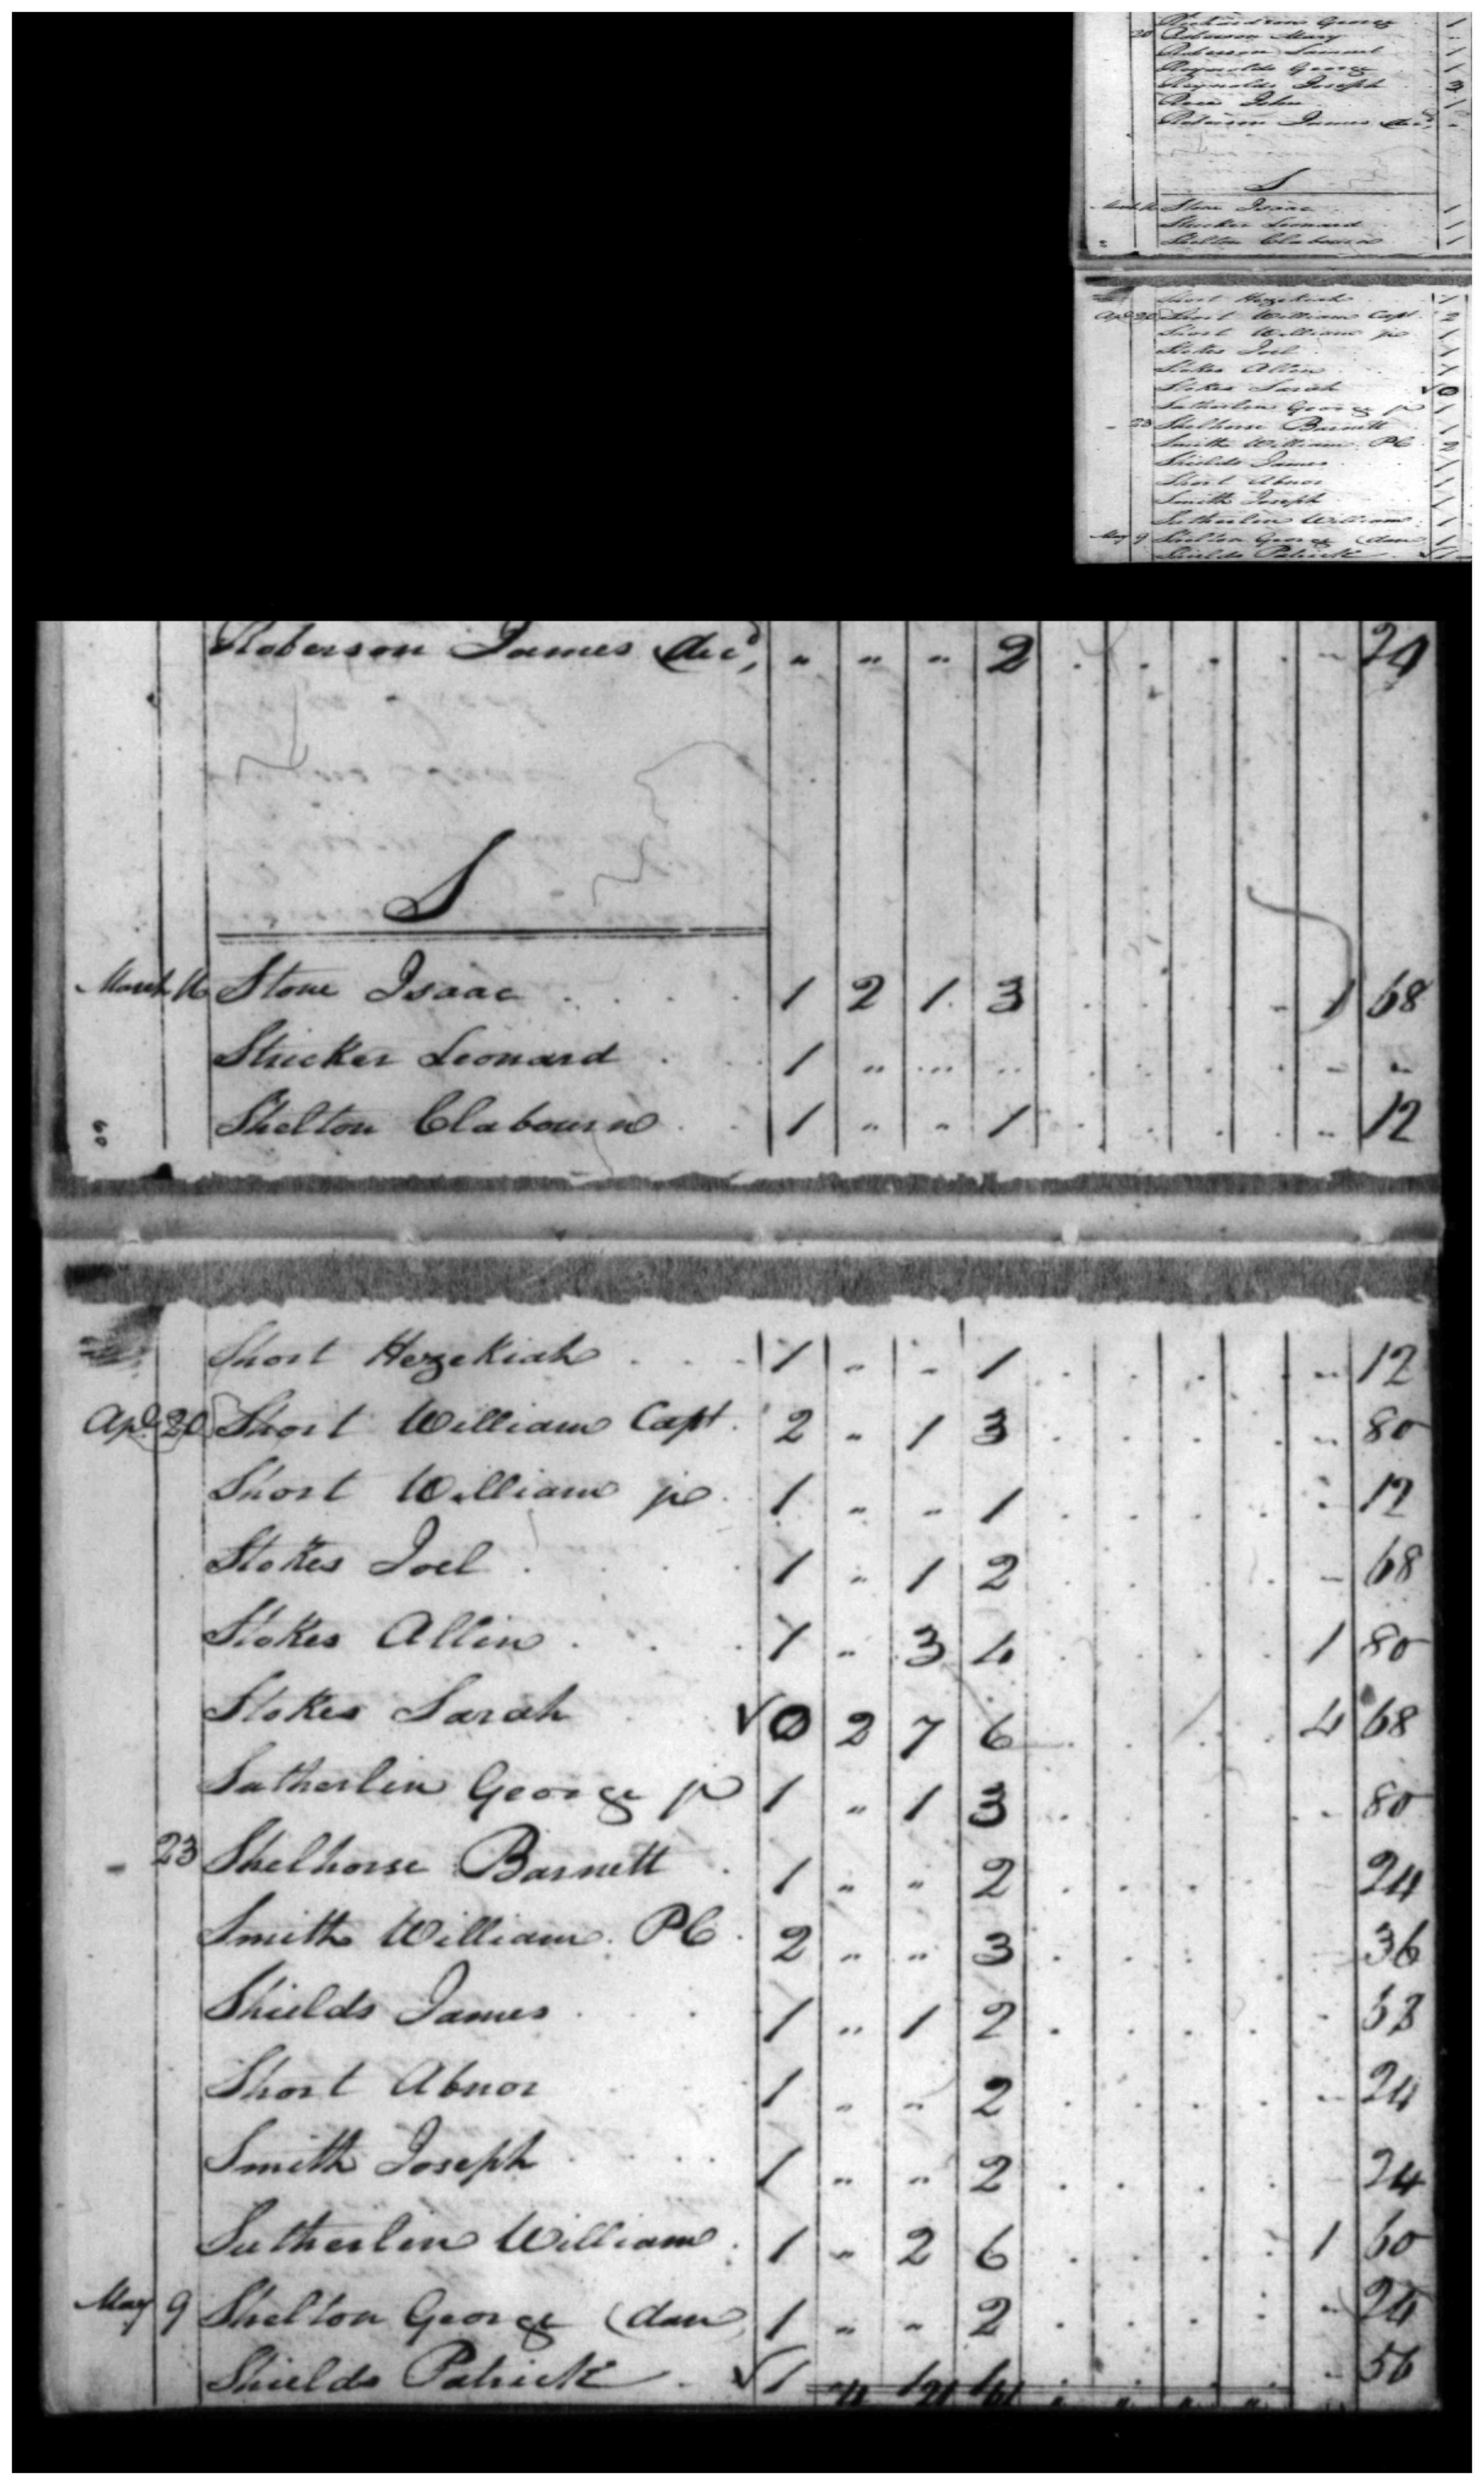 Richardson George 1
20 Roberson Mary "
Roberson Samuel 1
Reynolds George 1
Reynolds Joseph 3
Rice John 1
Roberson James decd, "
S
March 16 Stone Isaac 1
Stricker Leonard 1
Shelton Clabourn 1
Short Hezekiah 1
Apl 20 Short William Capt. 2
Short William jr 1
Stokes Joel 1
Stokes Allin 1
Stokes Sarah √0
Sutherlin George jr 1
" 23 Shelhorse Barnett 1
Smith William PC 2
Shields James 1
Short Abnor 1
Smith Joseph 1
Sutherlin William 1
May 9 Shelton George (dan 1
Shields Patrick √1
Roberson James decd, " " " 2 . . . . " 24
S
March 16 Stone Isaac 1 2 1 3 . . . . 1 68
Stricker Leonard 1 " " " . . . . " "
Shelton Clabourn 1 " " 1 . . . . " 12
Short Hezekiah 1 " " 1 . . . . " 12
Apl 20 Short William Capt. 2 " 1 3 . . . . " 80
Short William jr 1 " " 1 . . . . " 12
Stokes Joel 1 " 1 2 . . . . " 68
Stokes Allin 1 " 3 4 . . . . 1 80
Stokes Sarah √0 2 7 6 . . . . 4 68
Sutherlin George jr 1 " 1 3 . . . . " 80
" 23 Shelhorse Barnett 1 " " 2 . . . . 24
Smith William PC 2 " " 3 . . . . 36
Shields James 1 " 1 2 . . . . "
Short Abnor 1 " " 2 . . . . " 24
Smith Joseph 1 " " 2 . . . . 24
Sutherlin William 1 " 2 6 . . . . 1 60
May 9 Shelton George (dan 1 " " 2 . . . . " 24
Shields Patrick √1 " 56